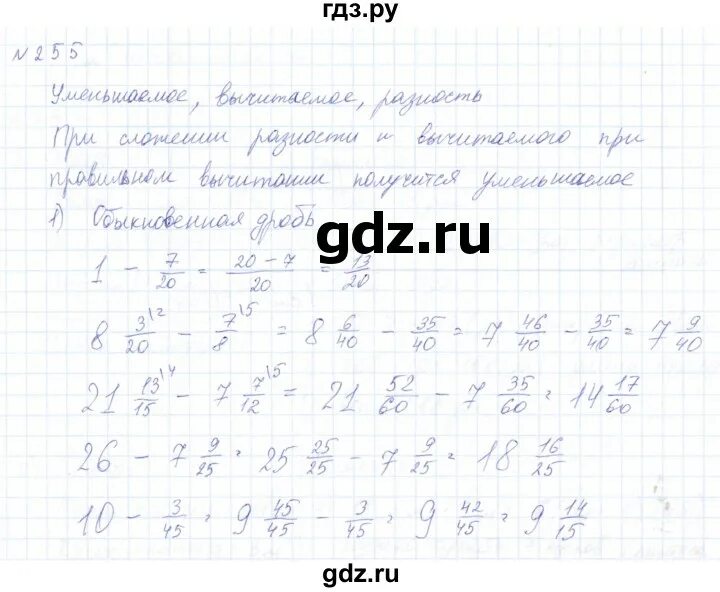 гдз.ру
№255
Уменьшаемое, вычитаемое, разность
При сложении разности и вычитаемого при
правильном вычитании получится уменьшаемое
1) Обыкновенная дробь
gdz.ru
1 - 7/20 = 20-7/20 = 13/20
8 3/20 \2 - 7/8 \5 = 8 6/40 - 35/40 = 7 46/40 - 35/40 = 7 9/40
21 13/15 \4 - 7 7/12 \5 = 21 52/60 - 7 35/60 = 14 17/60
26 - 7 9/25 = 25 25/25 - 7 9/25 = 18 16/25
10 - 3/45 = 9 45/45 - 3/45 = 9 42/45 = 9 14/15
gdz.ru